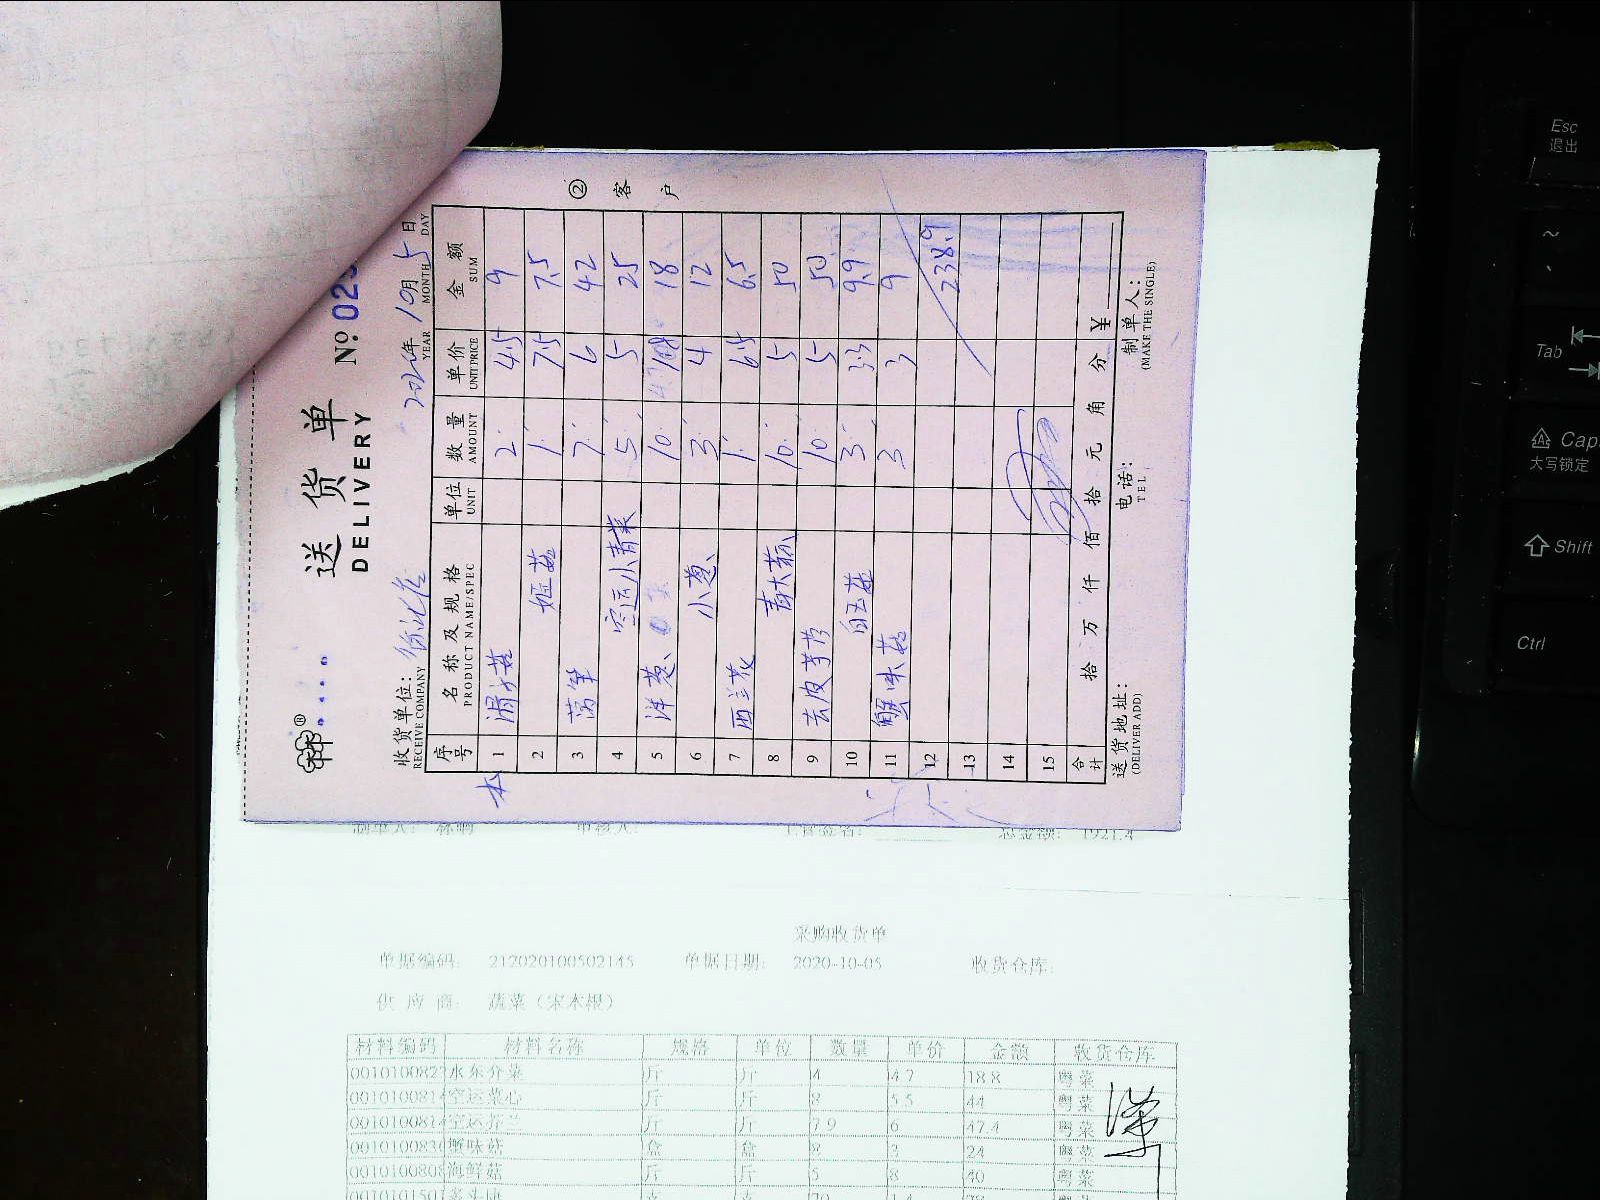 ② 客户
送 货 单
DELIVERY
№ 02
收货单位:
RECEIVE COMPANY
2020年 10月 5日
YEAR MONTH DAY
序号 名称及规格 单位 数量 单价 金额
PRODUCT NAME/SPEC UNIT AMOUNT UNIT PRICE SUM
1 滑子菇 2 4.5 9
2 姬菇 1 7.5 7.5
3 莴笋 7 6 42
4 空运小青菜 5 5 25
5 洋葱 10 18
6 小葱 3 4 12
7 西兰花 1 6.5 6.5
8 青大蒜 10 5 50
9 去皮芋艿 10 5 50
10 白玉菇 3 3.3 9.9
11 蟹味菇 3 3 9
12 238.9
13
14
15
合计 拾 万 仟 佰 拾 元 角 分 ¥
送货地址: 电话: 制单人:
(DELIVER ADD) TEL (MAKE THE SINGLE)
制单人: 林 审核人: 主管签名: 总金额: 1921.4
采购收货单
单据编码: 212020100502145 单据日期: 2020-10-05 收货仓库:
供 应 商: 蔬菜（宋本根）
材料编码 材料名称 规格 单位 数量 单价 金额 收货仓库
001010082 水东介菜 斤 斤 4 4.7 18.8 粤菜
001010081 空运菜心 斤 斤 8 5.5 44 粤菜
001010081 空运芥兰 斤 斤 7.9 6 47.4 粤菜
001010083 蟹味菇 盒 盒 8 3 24 粤菜
001010080 海鲜菇 斤 斤 5 8 40 粤菜
Esc
退出
~
Tab
Caps
大写锁定
Shift
Ctrl